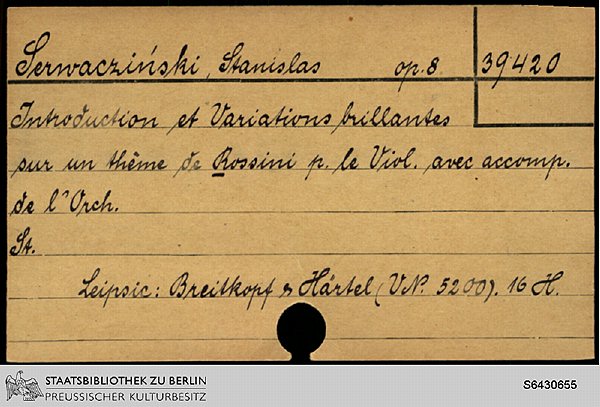 Serwacziński, Stanislas op. 8 39420
Introduction et Variations brillantes
sur un thême de Rossini p. le Viol. avec accomp.
de l'Orch.
St.
Leipsic: Breitkopf & Härtel (V.N. 5200). 16 H.
STAATSBIBLIOTHEK ZU BERLIN
PREUSSISCHER KULTURBESITZ
S6430655